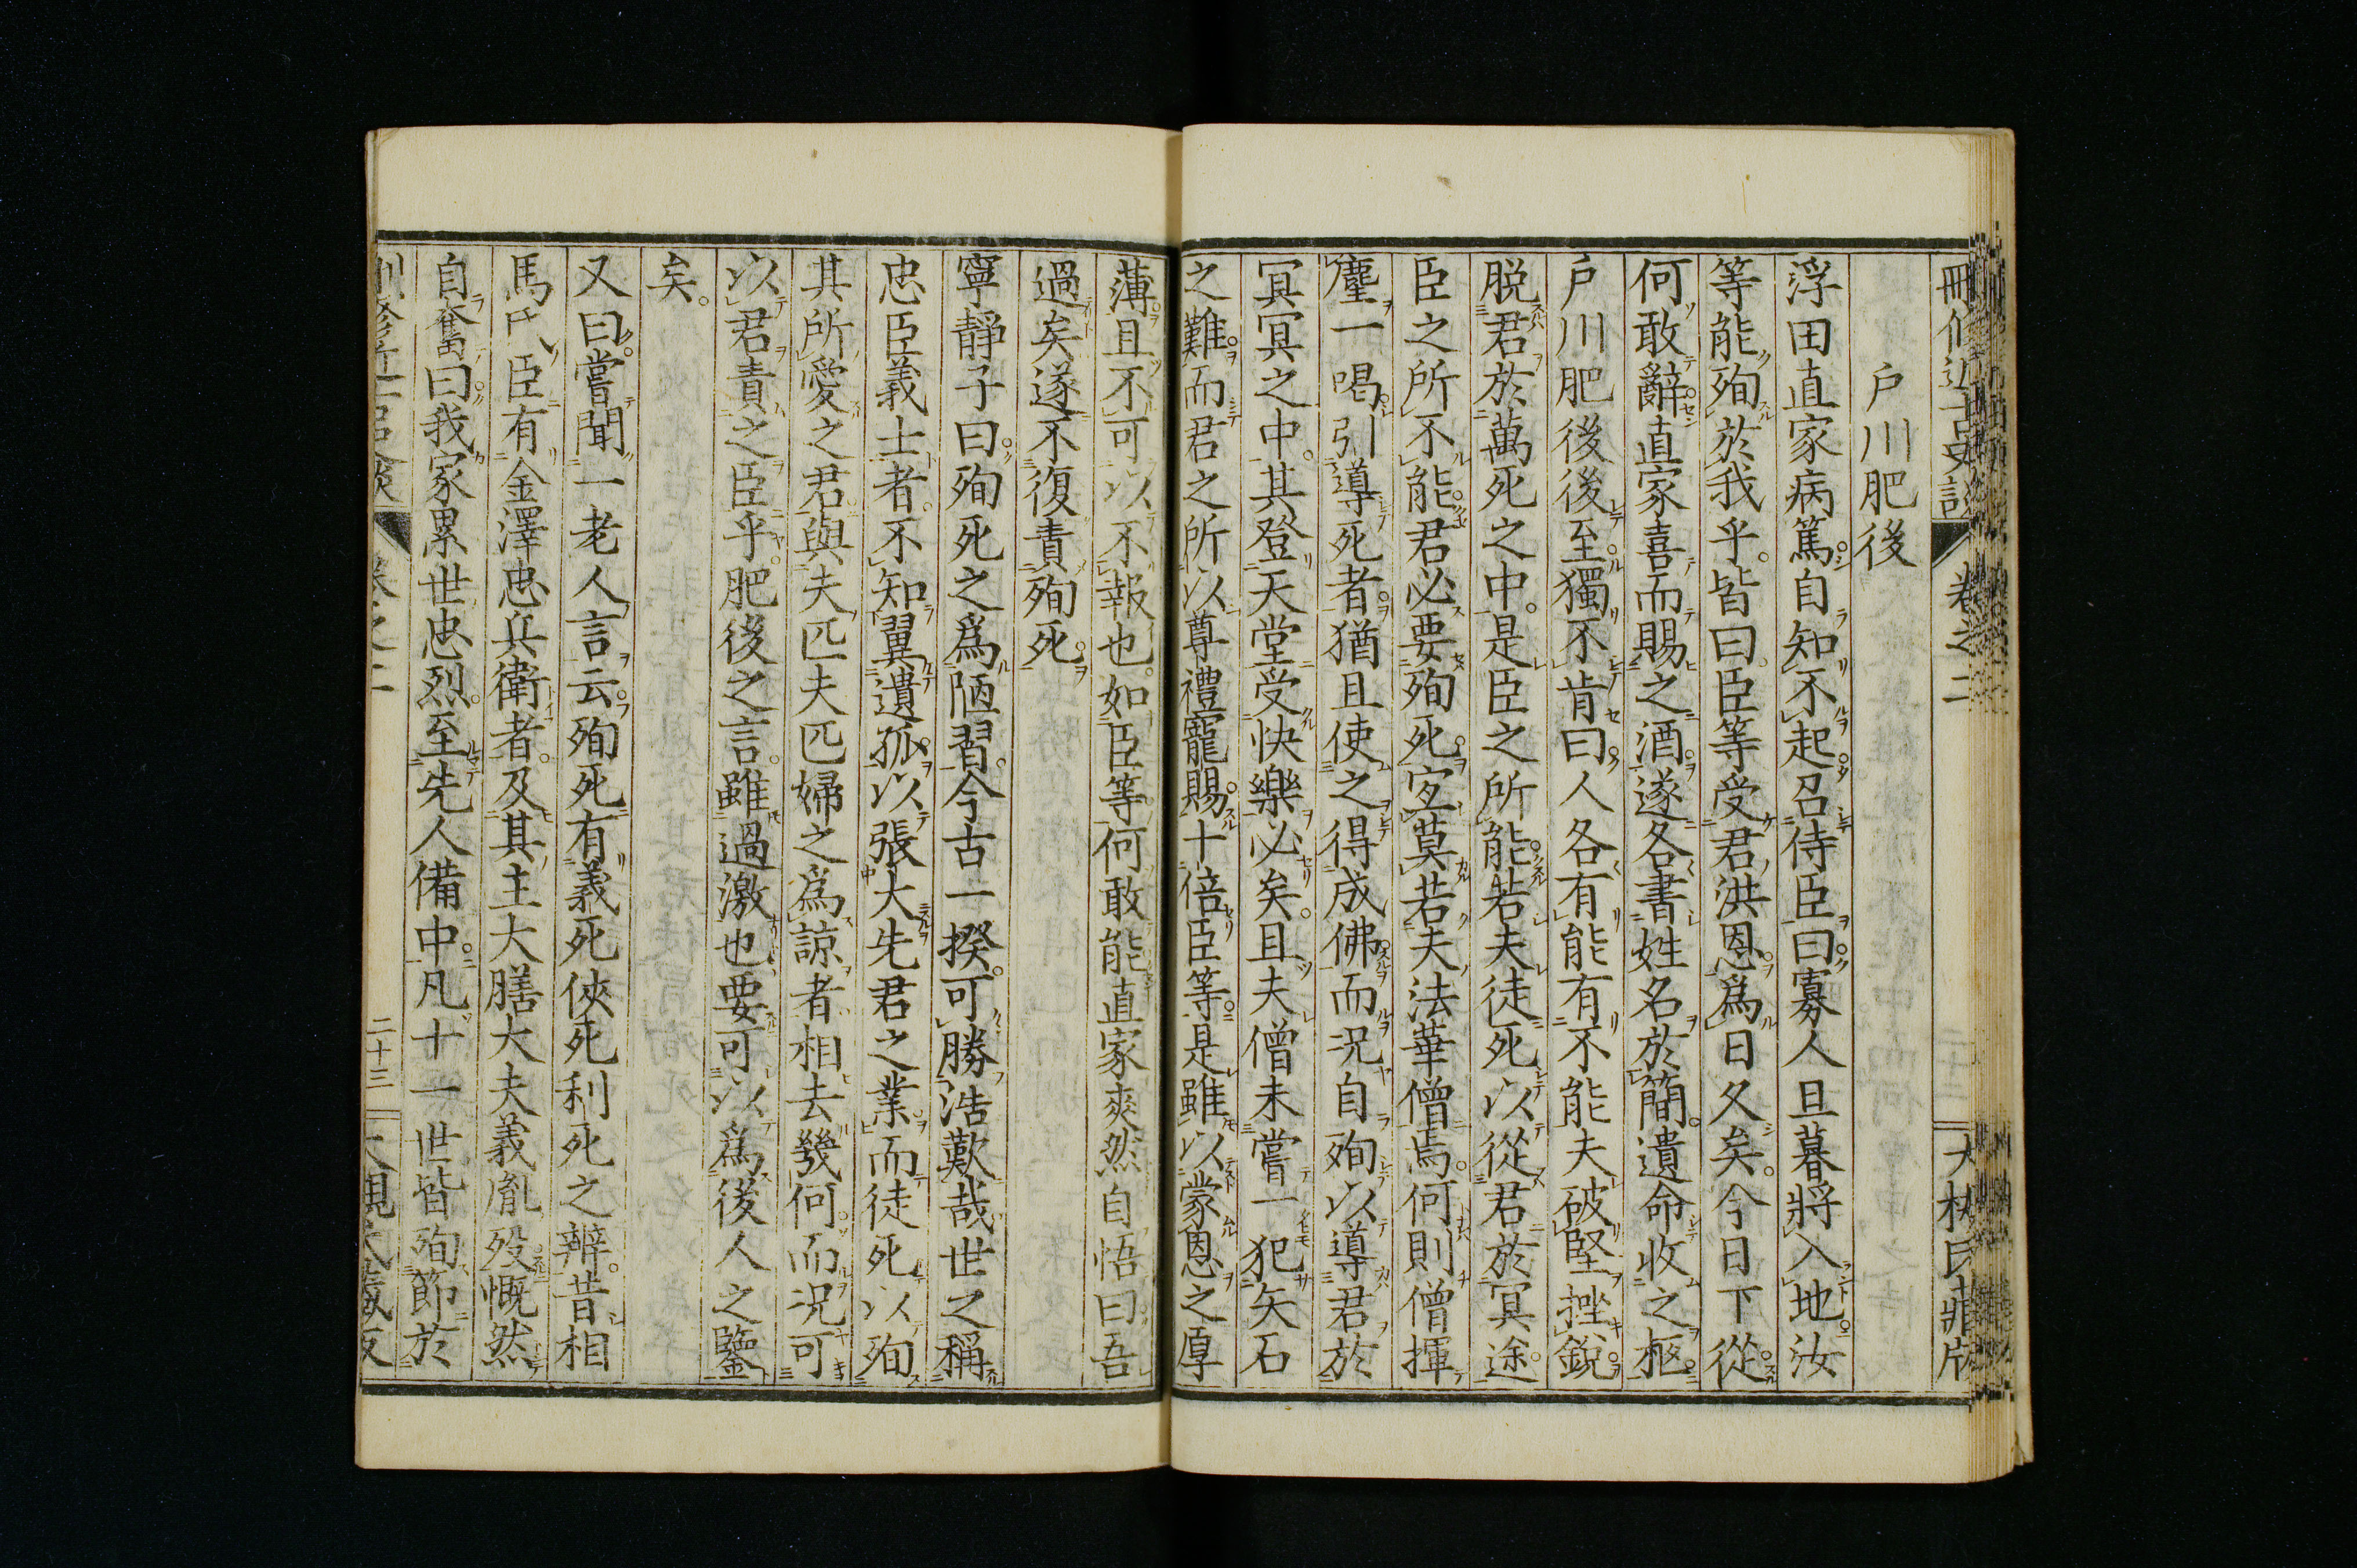 刪修近古史談 卷之二 大槻氏藏版
戶川肥後
浮田直家病篤自知不起召侍臣曰寡人旦暮將入地汝
等能殉於我乎皆曰臣等受君洪恩爲日久矣今日下從
何敢辭直家喜而賜之酒遂各書姓名於簡遺命收之柩
戶川肥後後至獨不肯曰人各有能有不能夫破堅挫銳
脱君於萬死之中是臣之所能若夫徒死以從君於冥途
臣之所不能君必要殉死寔莫若夫法華僧焉何則僧揮
麈一喝引導死者猶且使之得成佛而况自殉以導君於
冥冥之中其登天堂受快樂必矣且夫僧未嘗一犯矢石
之難而君之所以尊禮寵賜十倍臣等是雖以蒙恩之厚
薄且不可以不報也如臣等何敢能直家爽然自悟曰吾
過矣遂不復責殉死
寧靜子曰殉死之爲陋習今古一揆可勝浩歎哉世之稱
忠臣義士者不知翼遺孤以張大先君之業而徒死以殉
其所愛之君與夫匹夫匹婦之爲諒者相去幾何而况可
以君責之臣乎肥後之言雖過激也要可以爲後人之鑒
矣
又曰嘗聞一老人言云殉死有義死俠死利死之辨昔相
馬氏臣有金澤忠兵衛者及其主大膳大夫義胤歿慨然
自奮曰我家累世忠烈至先人備中凡十一世皆殉節於
刪修近古史談 卷之二 二十三 大槻氏藏版